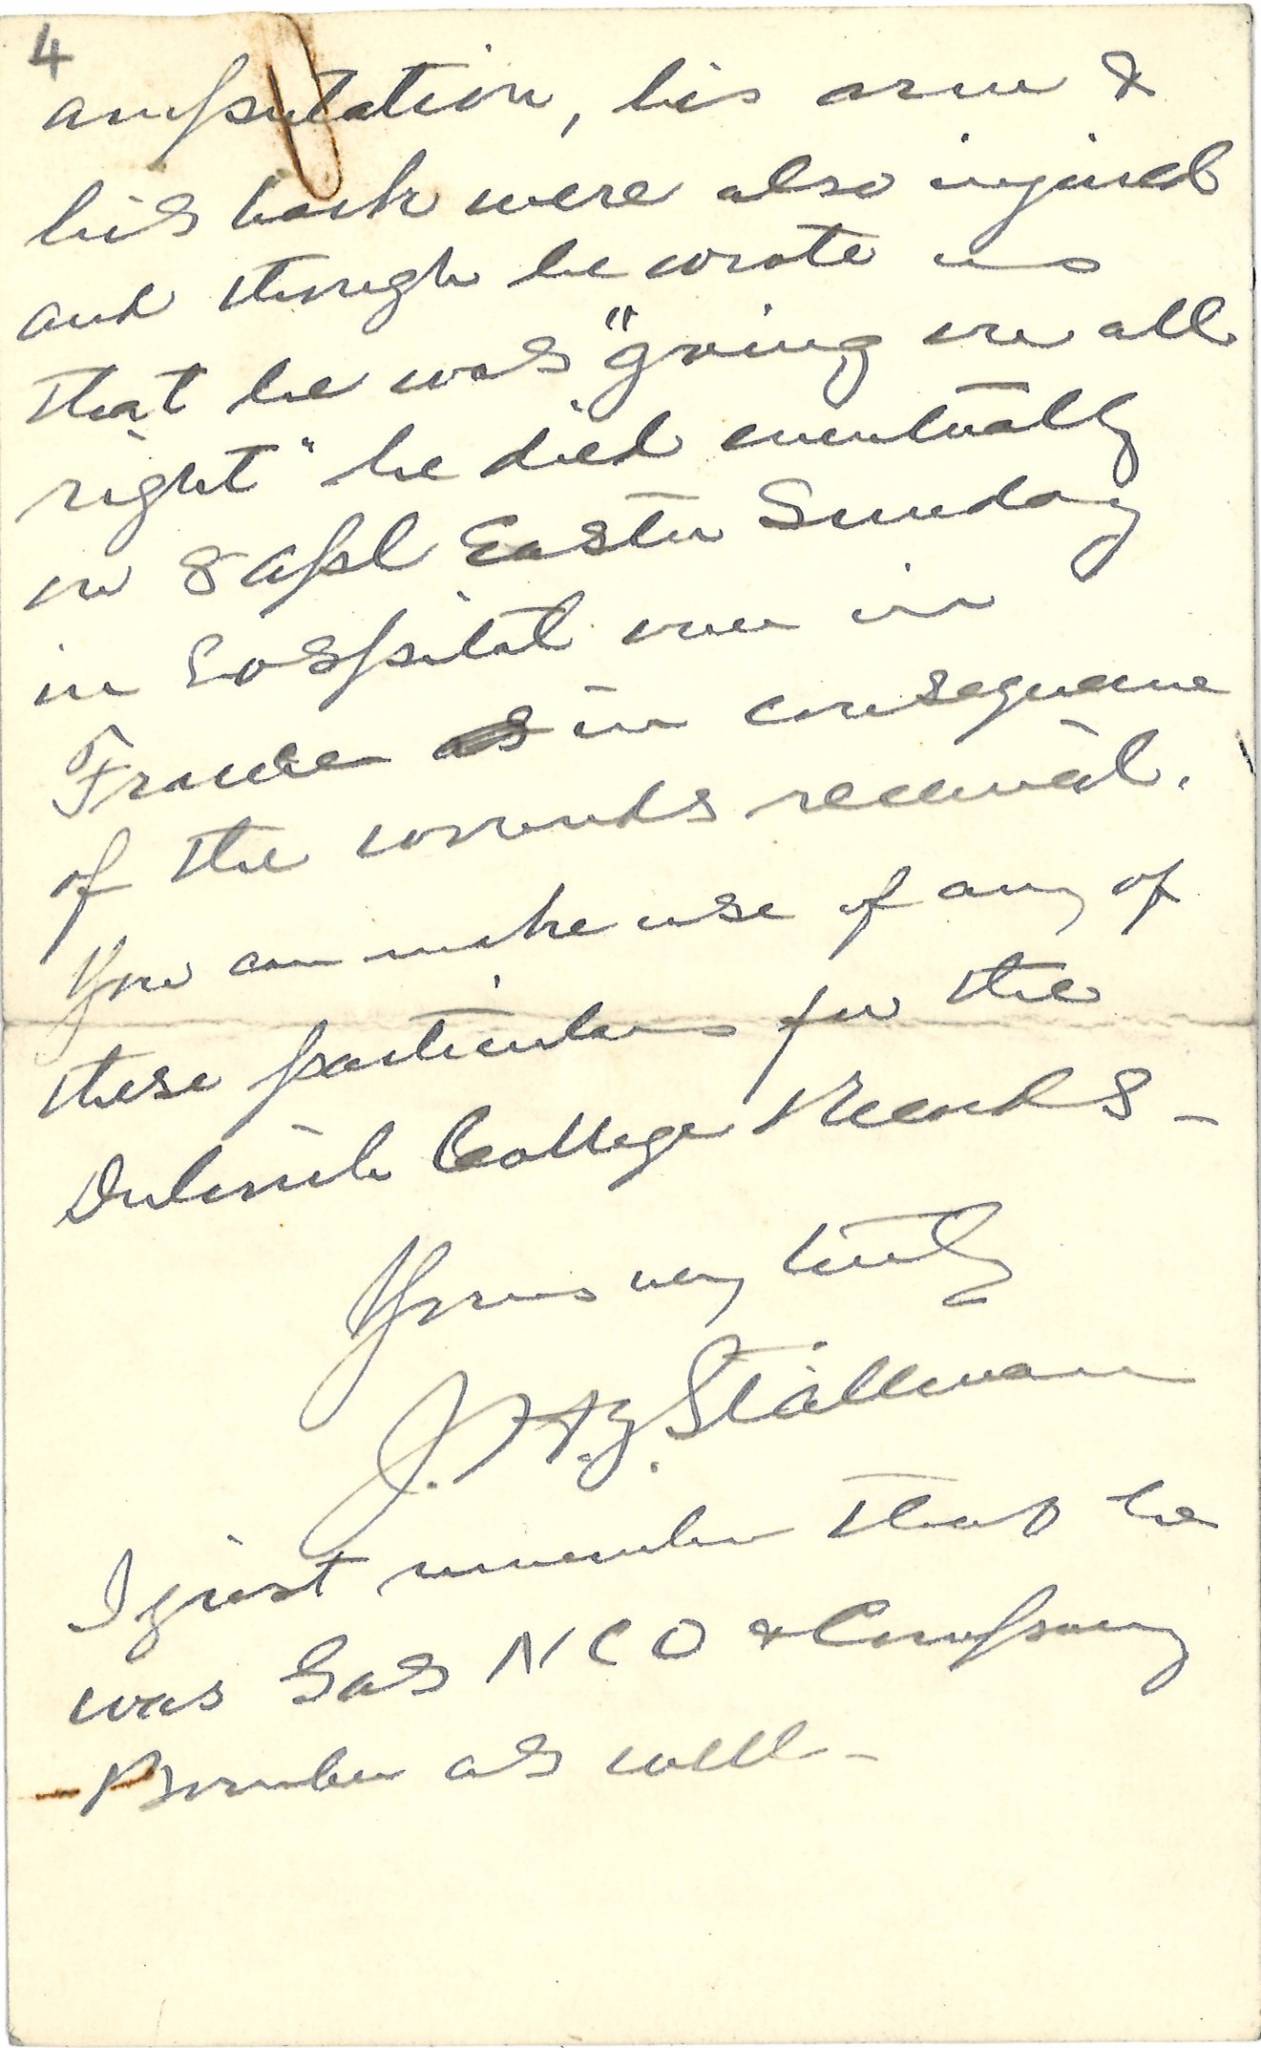 4
amputation, his arm &
his back were also injured
and though he wrote us
that he was "going on all
right" he died eventually
on 8 Apl Easter Sunday
in Hospital over in
France in consequence
of the wounds received.
You can make use of any of
these particulars for the
Dulwich College Records -
Yours very truly
J. H. G. Stallman
I just remember that he
was Gas N C O & Company
Bomber as well -